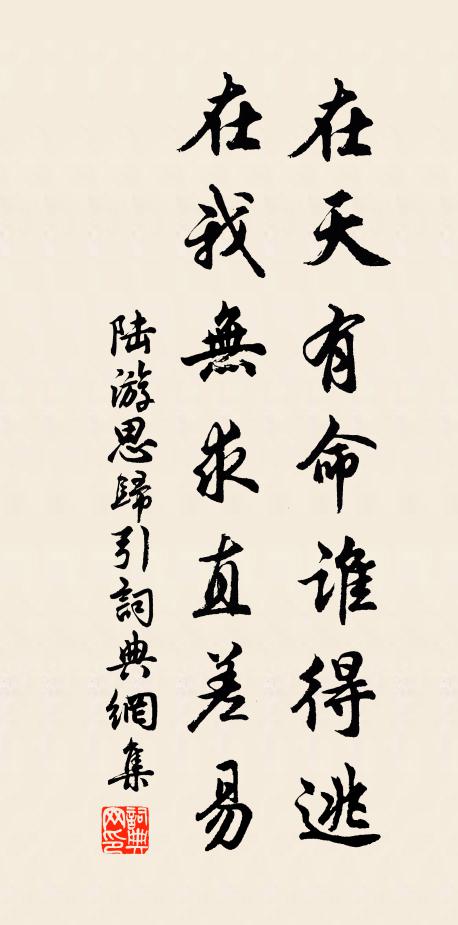 在天有命誰得逃
在我無求直差易
陸游思歸引詞典網集
詞典
网印